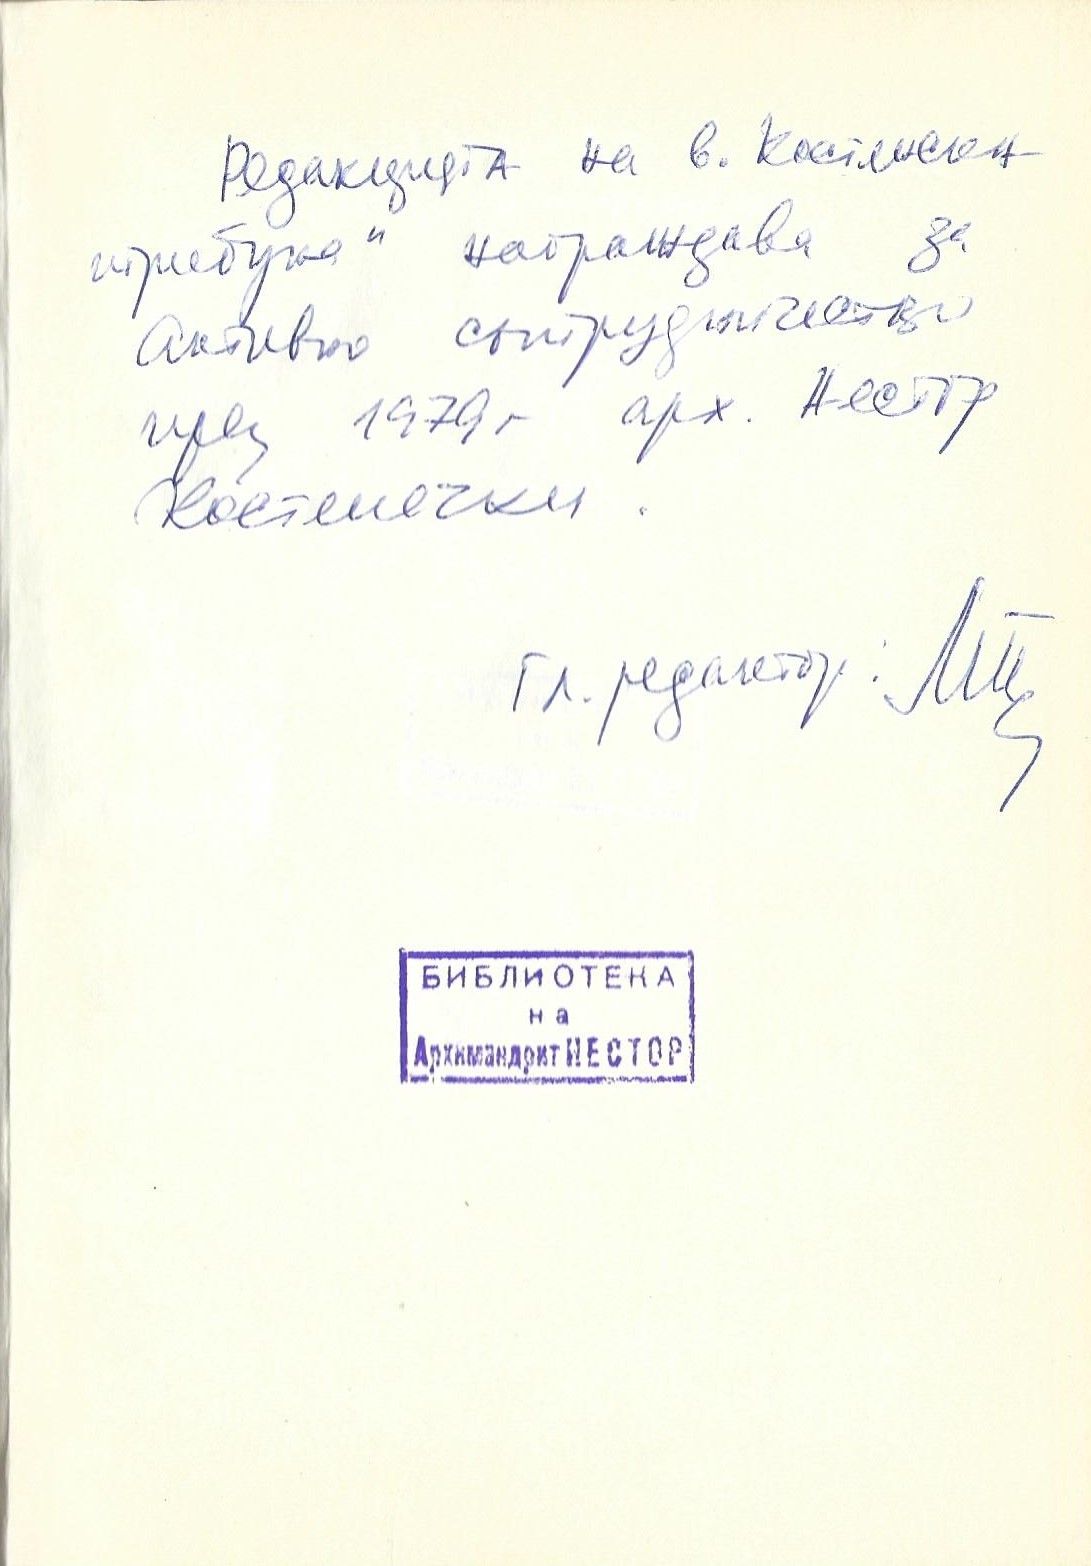 Редакцията на в. Костенска
трибуна" награждава за
Активно сътрудничество
през 1979 г. арх. Нестор
Костенечки.
Гл. редактор:
БИБЛИОТЕКА
на
Архимандрит НЕСТОР